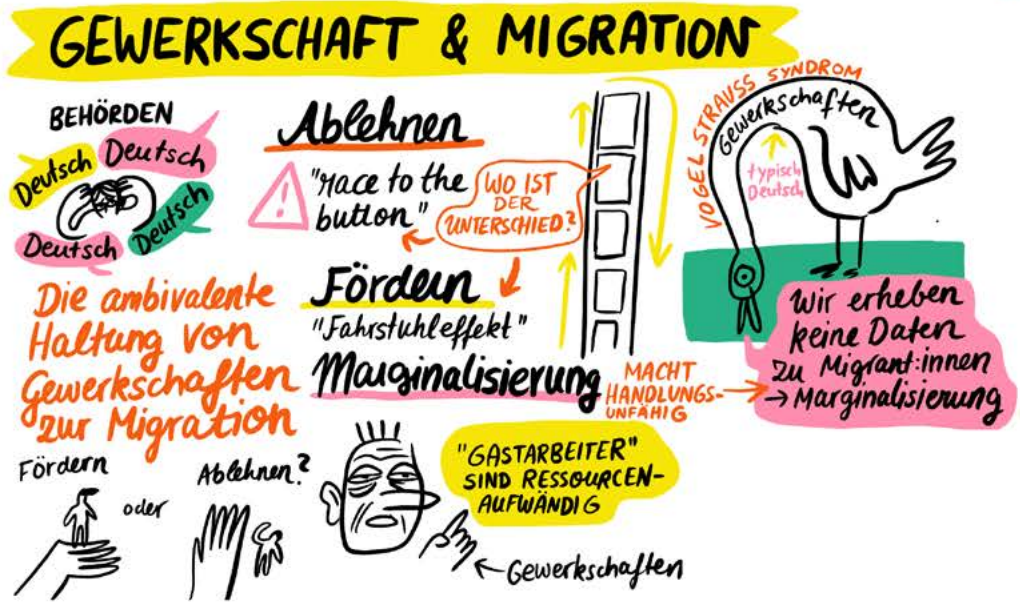 GEWERKSCHAFT & MIGRATION
BEHÖRDEN
Deutsch
Deutsch
Deutsch
Deutsch
Die ambivalente
Haltung von
Gewerkschaften
zur Migration
Fördern
oder
Ablehnen?
Ablehnen
"race to the
button"
WO IST
DER
UNTERSCHIED?
Fördern
"Fahrstuhleffekt"
Marginalisierung
MACHT
HANDLUNGS-
UNFÄHIG
"GASTARBEITER"
SIND RESSOURCEN-
AUFWÄNDIG
Gewerkschaften
VOGEL STRAUSS SYNDROM
Gewerkschaften
typisch
Deutsch
Wir erheben
keine Daten
zu Migrant:innen
→ Marginalisierung